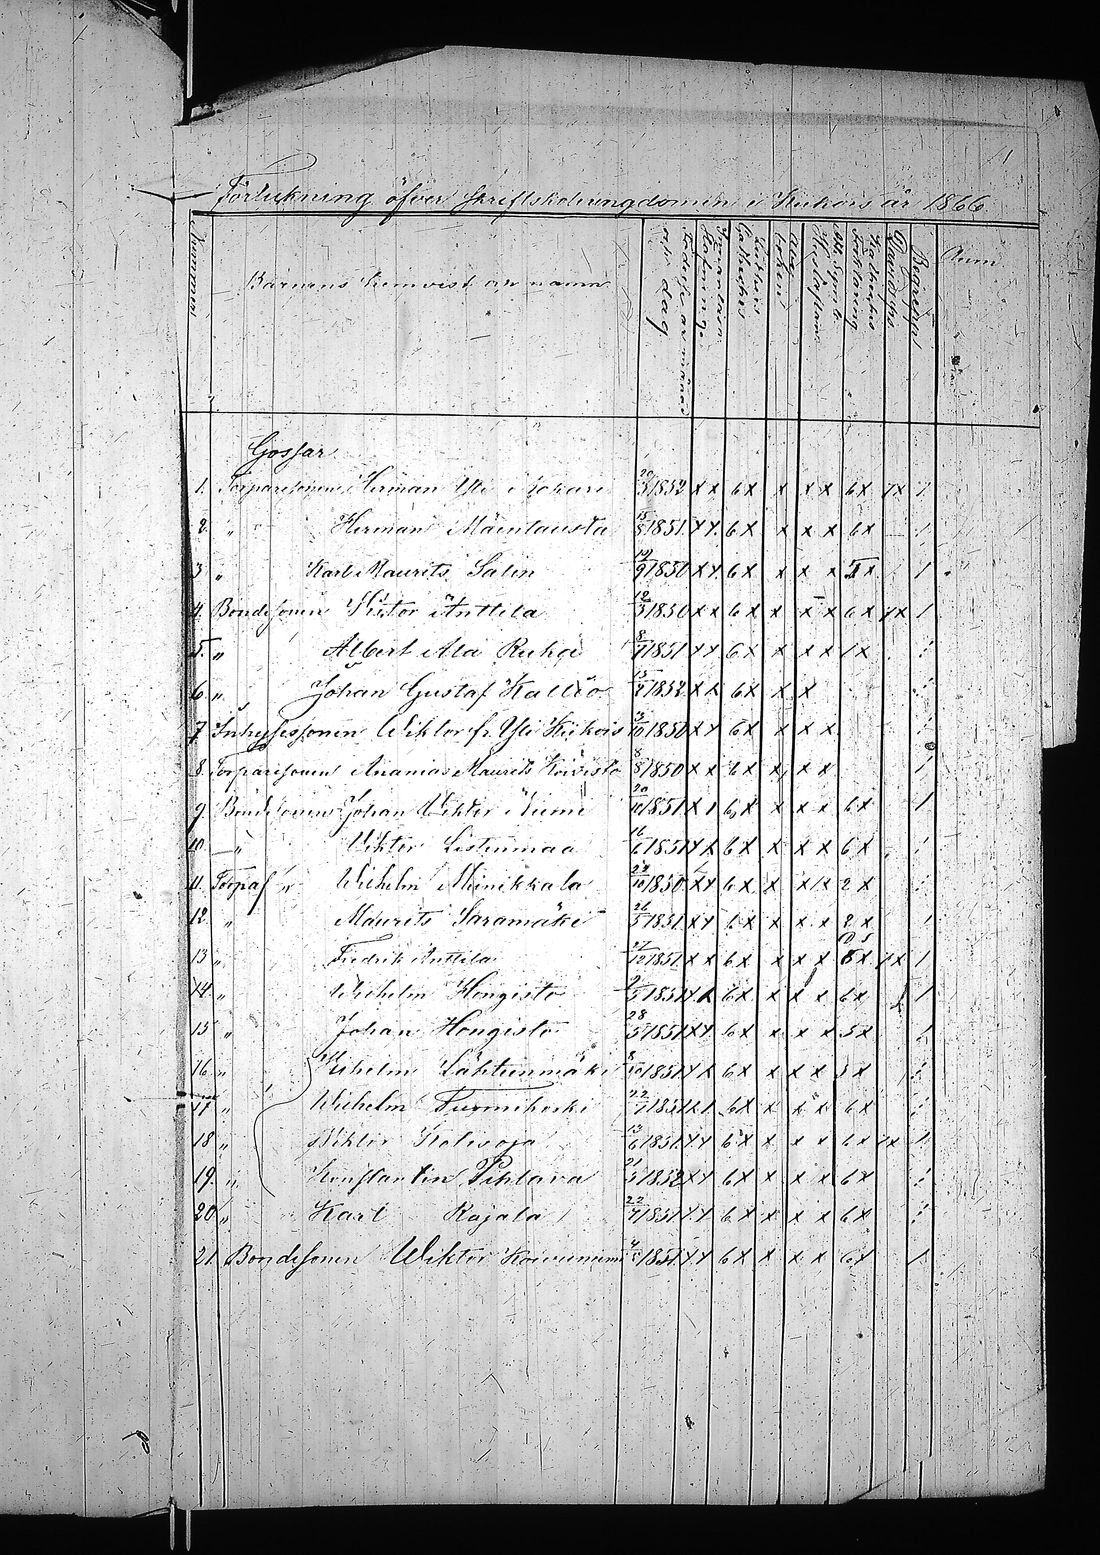 1
Förtekning öfver Skriftskolungdomen i Kiikois år 1866
Nummer
Barnens hemvist och namn
Födelse år månad och dag
Innanläsning
Lutheri Catches
Aug
Hustaflan
Ath. Symb.
Kathches Förklaring
Davids Ps
Begrepp
Anm
Gossar
1. Torparesonen Herman Yli 20/3 1852 x x 6 x x x x 6 x 7 x 1
2. " Herman Mäentausta 15/8 1851 x x 6 x x x x 6 x 1
3 " Karl Maurits Salin 19/9 1850 x x 6 x x x x x 1
4. Bondesonen Viktor Anttila 12/3 1850 x x 6 x x x x 6 x 7 x 1
5. " Albert Ala 8/7 1851 x x 6 x x x x 1 x
6 " Johan Gustaf Kallio 1852 x x 6 x x x
7 Inhysessonen Wiktor fr. Yli Kiikois 10 1850 x x 6 x x x x
8. Torparesonen Ananias Maurits Koivisto 8/8 1850 x x 6 x x x x 1
9. Bondesonen Johan Viktor Niemi 20/10 1851 x 1 6 x x x x 6 x 1
10 " Viktor Listenmaa 16/6 1851 x x 6 x x x x 6 x
11. Torpas " Wilhelm Minikkala 24/10 1850 x x 6 x x x 2 x
12. " Maurits Saramäki 26/5 1851 x x 6 x x x x 2 x 1
13 " Fredrik Anttila 27/12 1851 x x 6 x x x x x 7 x 1
14. " Wilhelm Hongisto 1851 x x 6 x x x x 6 x 1
15 " Johan Hongisto 28/5 1851 x x 6 x x x x 5 x
16 " Wilhelm Lähteenmäki 8/10 1851 x x 6 x x x x 3 x
17 " Wilhelm Tuomikoski 22/7 1851 x 1 6 x x x x 6 x
18 " Viktor 13/6 1851 x x 6 x x x x 6 x 7 x 1
19. " Konstantin Pihlava 21 1852 x x 6 x x x x 6 x
20 " Karl Rajala 22/7 1851 x x 6 x x x x 6 x
21. Bondesonen Wiktor Koivuniemi 1851 x x 6 x x x x 6 x 1